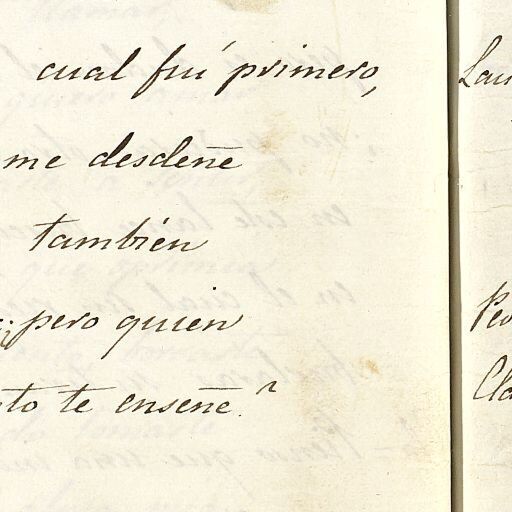 cual fuí primero,
me desdeñe
también
; pero quien
to te enseñe?